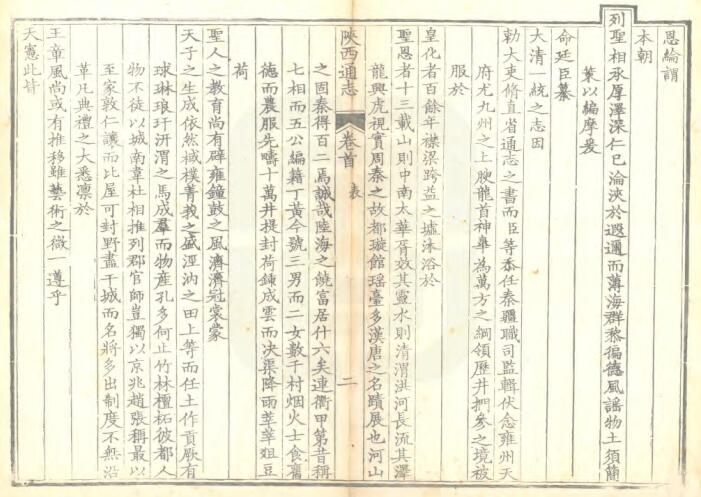 恩綸謂
本朝
列聖相承厚澤深仁已淪浹於遐邇而薄海群黎徧德風謠物土須簡
策以編摩爰
命廷臣纂
大清一統之志因
勅大吏脩直省通志之書而臣等忝任秦疆職司監輯伏念雍州天
府尤九州之上腴龍首神臯為萬方之綱領歷井捫參之境被
服於
皇化者百餘年襟梁跨益之墟沐浴於
聖恩者十三載山則中南太華胥效其靈水則清渭洪河長流其澤
龍興虎視實周秦之故都璇館瑤臺多漢唐之名蹟展也河山
陝西通志
卷首
表
二
之固秦得百二焉誠哉陸海之饒富居什六矣連衢甲第昔稱
七相而五公編籍丁黃今號三男而二女數千村烟火士食舊
德而農服先疇十萬井提封荷鍤成雲而決渠降雨莘莘俎豆
荷
聖人之教育尚有辟雍鐘鼓之風濟濟冠裳蒙
天子之生成依然棫樸菁莪之盛涇汭之田上等而任土作貢厥有
球琳琅玕汧渭之馬成羣而物產孔多何止竹林檀柘彼都人
物不徒以城南韋杜相推列郡官師豈獨以京兆趙張稱最以
至家敦仁讓而比屋可封野盡干城而名將多出制度不無沿
革凡典禮之大悉凛於
王章風尚或有推移雖藝術之微一遵乎
天憲此皆